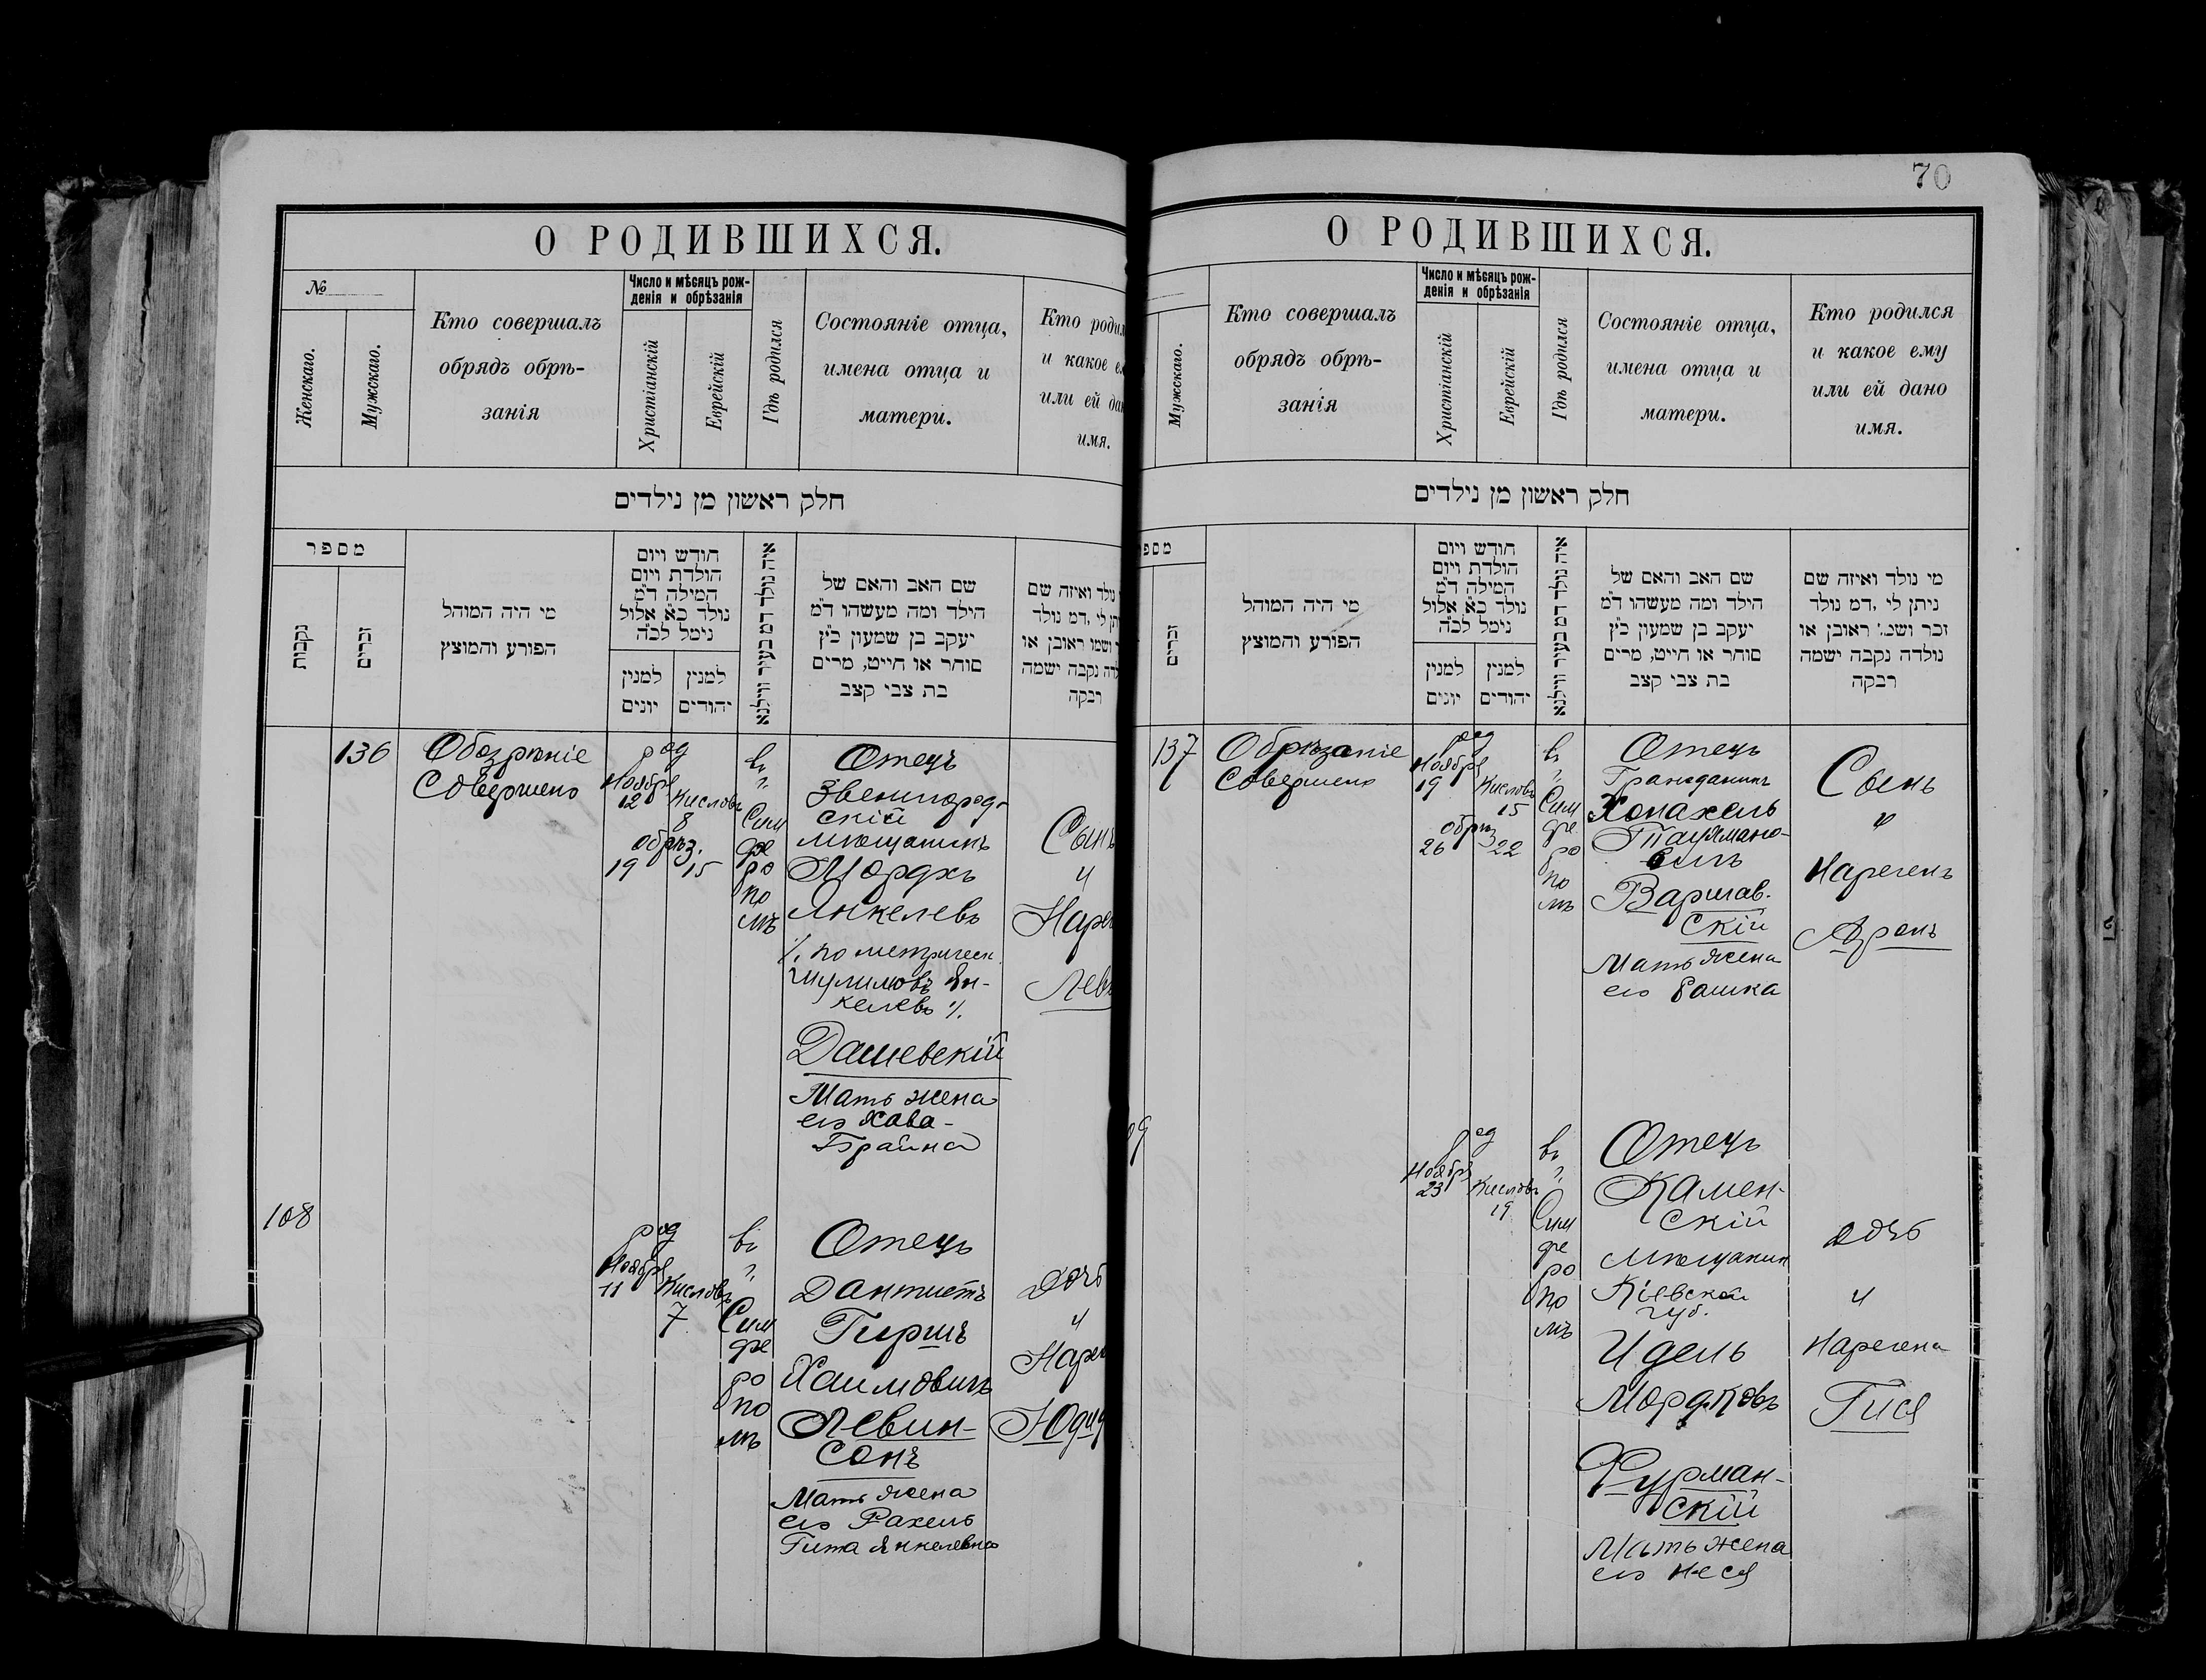 70
О РОДИВШИХСЯ.
№
Женскаго.
Мужскаго.
Кто совершалъ
обрядъ обрѣ-
занія
Число и мѣсяцъ рож-
денія и обрѣзанія
Христіанскій
Еврейскій
Гдѣ родился
Состояніе отца,
имена отца и
матери.
Кто родил
и какое е
или ей да
имя.
חלק ראשון מן נילדים
מספר
נקבות
זכרים
מי היה המוהל
הפורע והמוצץ
חודש ויום
הולדת ויום
המילה ד״מ
נולד כ״א אלול
נימל לכ״ה
למנין
יונים
למנין
יהודים
איה נולד דמ בעיר ווילנא
שם האב והאם של
הילד ומה מעשהו ד״מ
יעקב בן שמעון כ״ץ
סוחר או חייט, מרים
בת צבי קצב
נולד ואיזה שם
תן לי ,דמ נולד
ושמו ראובן או
דה נקבה ישמה
רבקה
136
Обозрѣніе
Совершено
род
Ноябр
12
Кисловъ
8
обрѣз.
19
15
въ
"
Сим
фе
ро
по
лѣ
Отецъ
Звенигород-
скій
мѣщанинъ
Мордхъ
Янкелевъ
%. по метрическ.
Шулимовъ Ян-
келевъ %.
Дашевскій
Мать жена
его Хава-
Брайна
Сынъ
"
Наре
Лев
108
род
Ноябр
11
Кисловъ
7
въ
"
Сим
фе
ро
по
лѣ
Отецъ
Дантистъ
Гиршъ
Хаимовичъ
Левин-
сонъ
Мать жена
его Рахель
Гита Янкелевна
Дочь
"
Наре
Юди
О РОДИВШИХСЯ.
Мужскаго.
Кто совершалъ
обрядъ обрѣ-
занія
Число и мѣсяцъ рож-
денія и обрѣзанія
Христіанскій
Еврейскій
Гдѣ родился
Состояніе отца,
имена отца и
матери.
Кто родился
и какое ему
или ей дано
имя.
חלק ראשון מן נילדים
מספ
זכרים
מי היה המוהל
הפורע והמוצץ
חודש ויום
הולדת ויום
המילה ד״מ
נולד כ״א אלול
נימל לכ״ה
למנין
יונים
למנין
יהודים
איה נולד דמ בעיר ווילנא
שם האב והאם של
הילד ומה מעשהו ד״מ
יעקב בן שמעון כ״ץ
סוחר או חייט, מרים
בת צבי קצב
מי נולד ואיזה שם
ניתן לי ,דמ נולד
זכר ושמ׳ ראובן או
נולדה נקבה ישמה
רבקה
137
Обрѣзаніе
Совершено
род
Ноябр
19
Кисловъ
15
обрѣз
26
22
въ
"
Сим
фе
ро
по
лѣ
Отецъ
Гражданинъ
Варшав-
скій
Мать жена
его Рашка
Сынъ
"
Нареченъ
Аронъ
09
род
Ноябр
23
Кисловъ
19
въ
"
Сим
фе
ро
по
лѣ
Отецъ
Камен-
скій
мѣщанин
Кіевской
губ.
Идель
Мордковъ
Фурман-
скій
Мать жена
его Неся
Дочь
"
Наречена
Гися